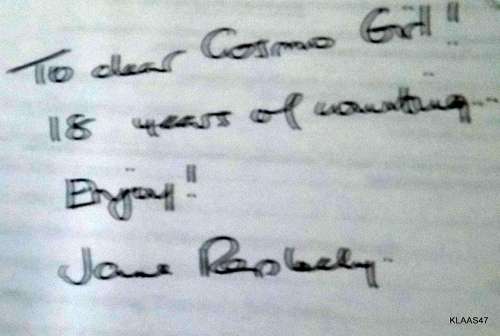 To dear Cosmo Girl!
18 years of
Enjoy!
Jane
KLAAS47